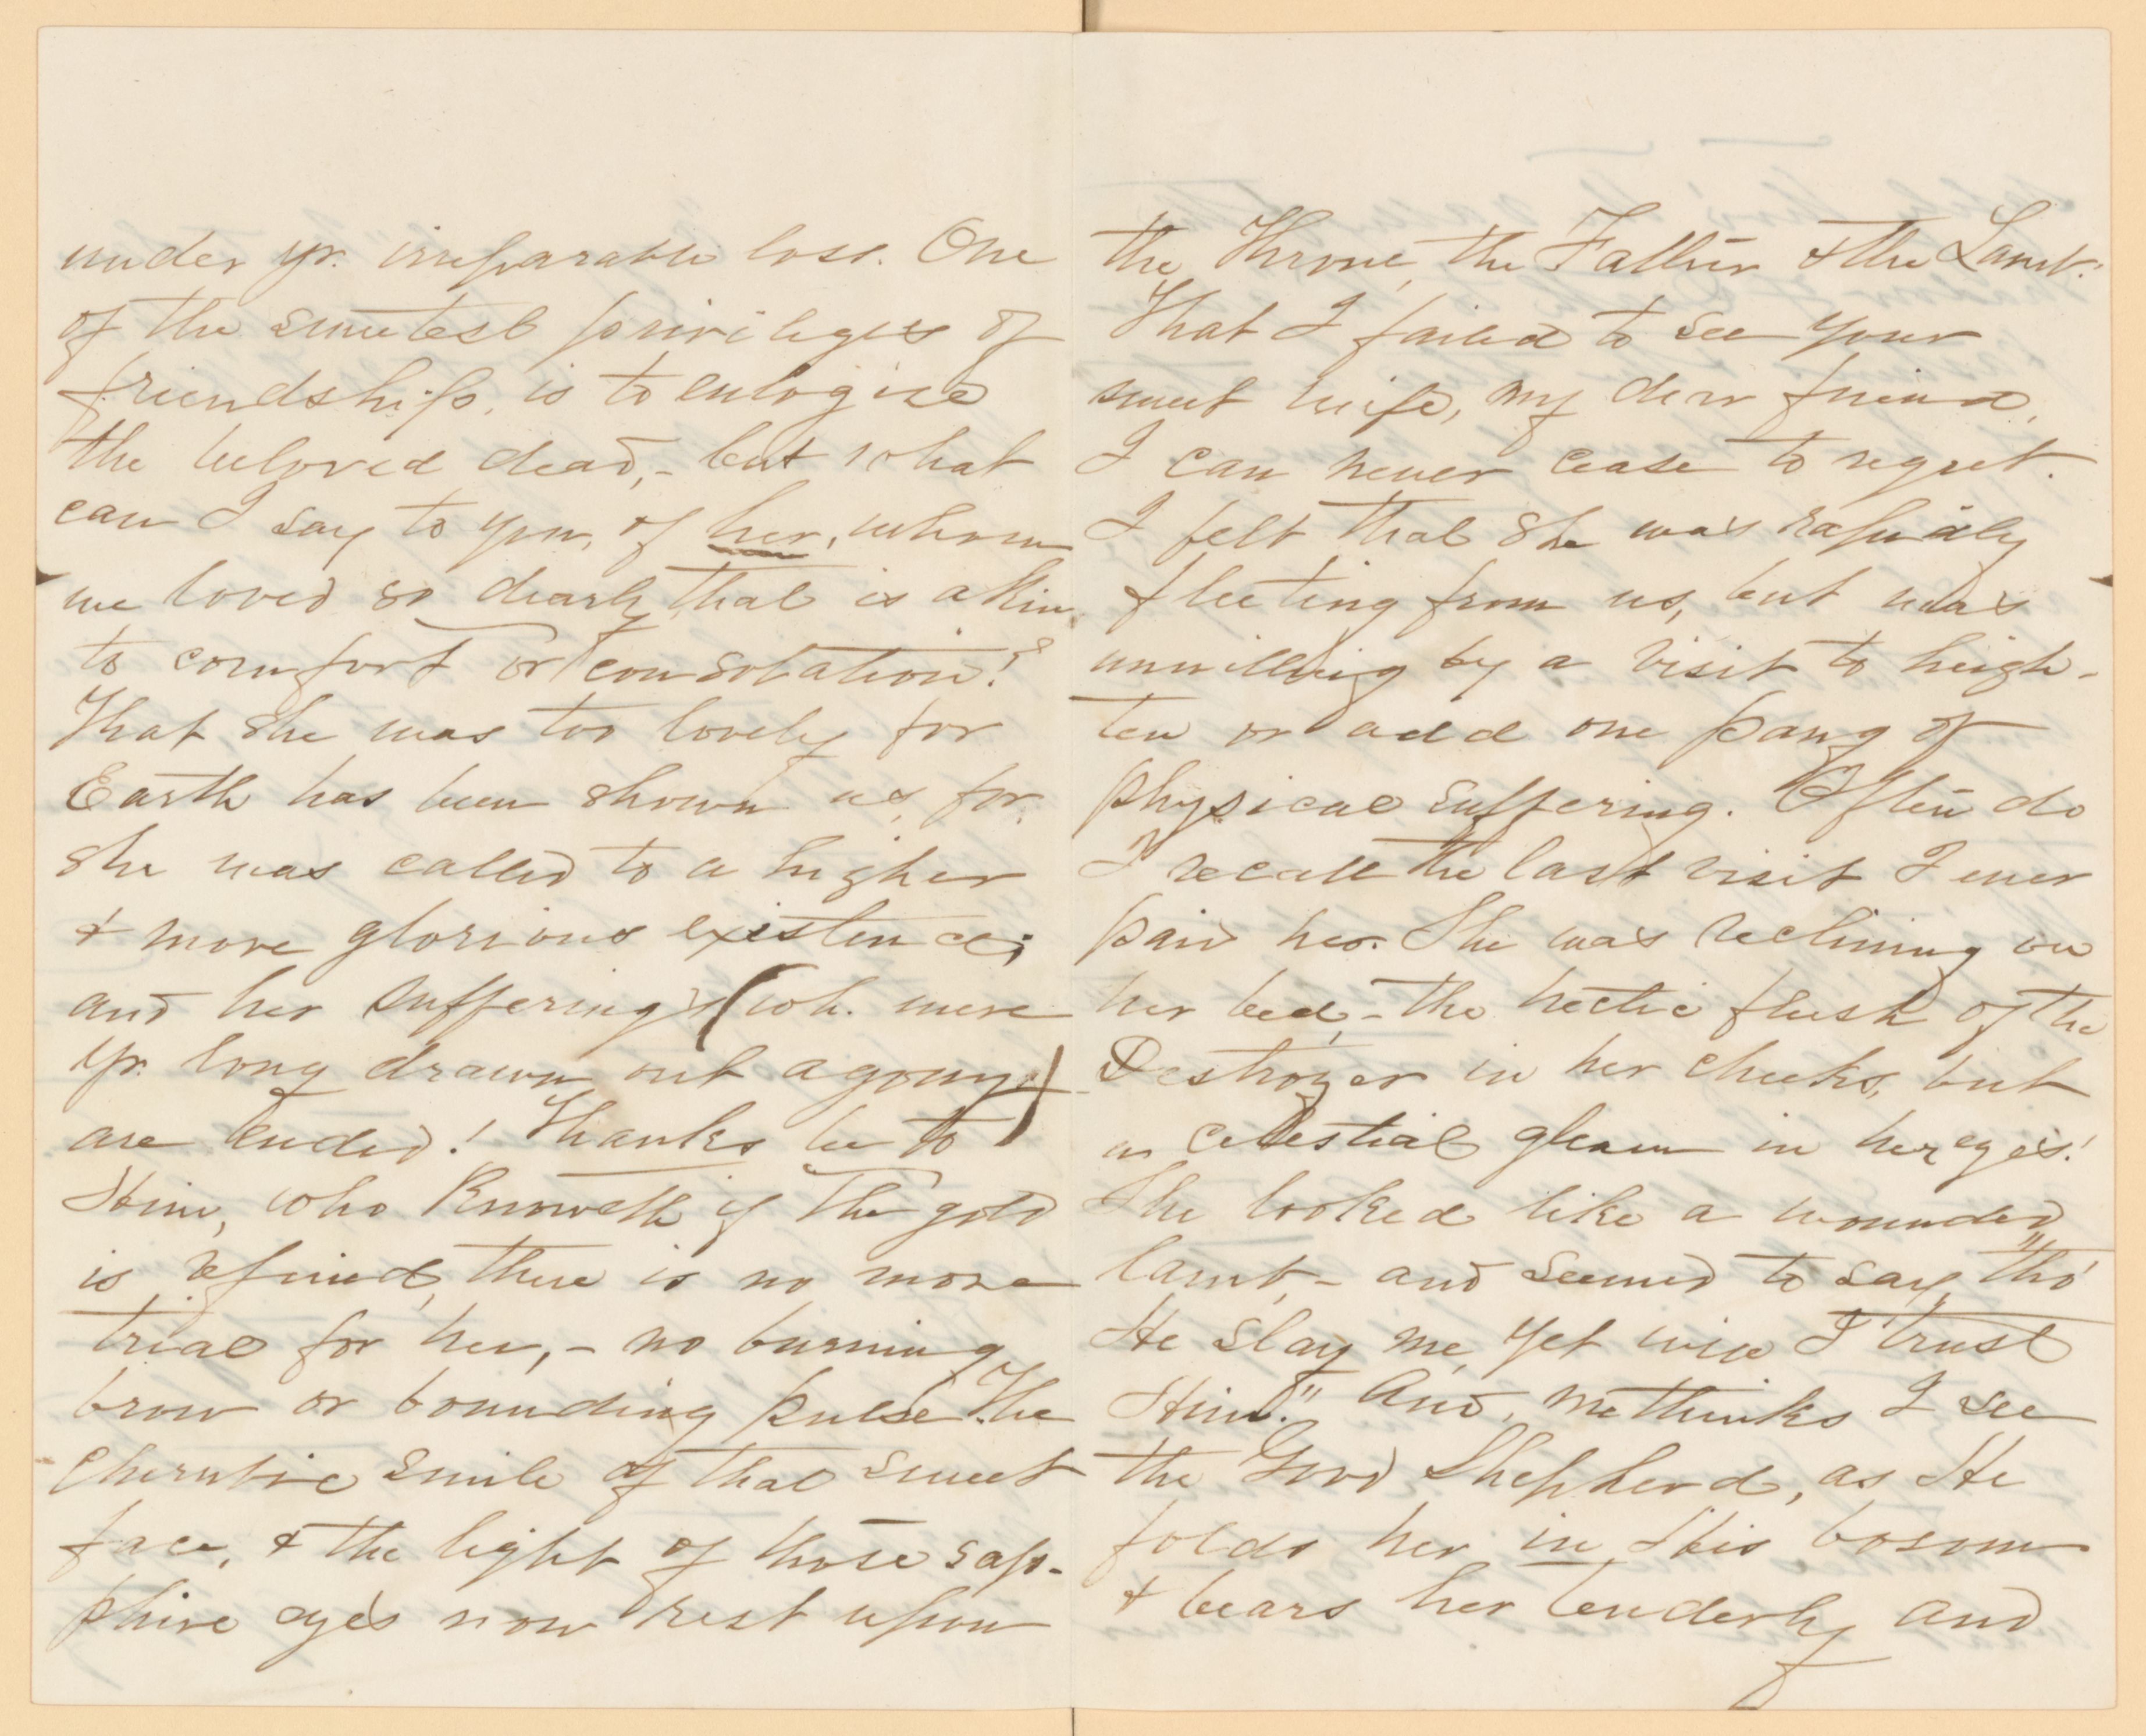 under yr. irreparable loss. One
of the sweetest privileges of
friendship, is to eulogize
the beloved dead,- but what
can I say to you, of her, whom
we loved so dearly, that is akin
to comfort or consolation?
That she was too lovely for
Earth has been shown us, for
she was called to a higher
& more glorious existence;
and her sufferings (wh. were
yr. long drawn out agony)
are ended! Thanks be to
Him, who knoweth if the gold
is refined, there is no more
trial for her,- no burning
brow or bounding pulse. The
cherubic smile of that sweet
face, & the light of those sap-
phire eyes now rest upon
the Throne, the Father & the Lamb.
That I failed to see your
sweet wife, my dear friend,
I can never cease to regret.
I felt that she was rapidly
fleeting from us, but was
unwilling by a visit to heigh-
ten or add one pang of
physical suffering. Often do
I recall the last visit I ever
paid her. She was reclining on
her bed,- the hectic flush of the
Destroyer in her cheeks, but
a celestial gleam in her eyes!
She looked like a wounded
lamb,- and seemed to say, "tho'
He slay me, yet will I trust
Him." And, methinks I see
the Good Shepherd, as He
folds her in His bosom
& bears her tenderly and